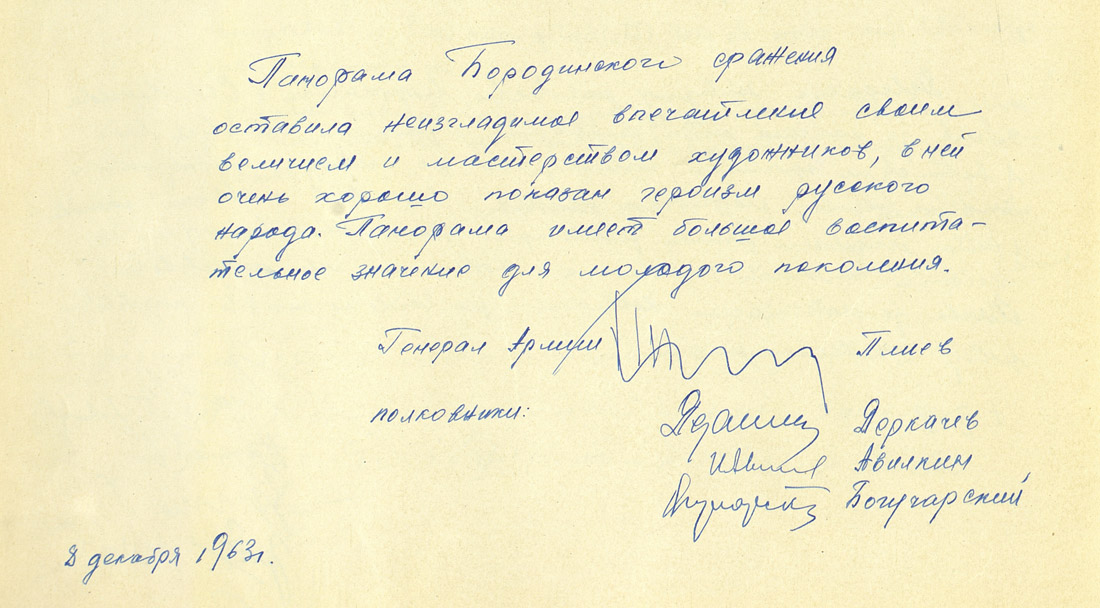 Панорама Бородинского сражения
оставила неизгладимое впечатление своим
величием и мастерством художников, в ней
очень хорошо показан героизм русского
народа. Панорама имеет большое воспита-
тельное значение для молодого поколения.
Генерал Армии Плиев
полковники: Деркачев
Авилкин
Богучарский
8 декабря 1963г.